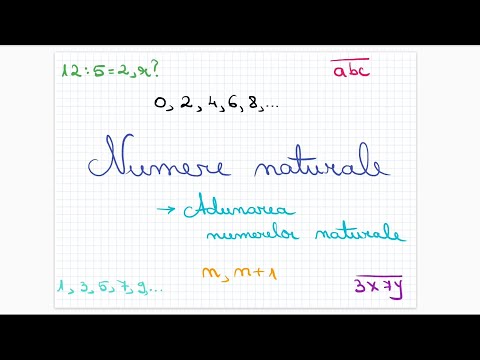 12:5=2,r?
a̅b̅c̅
0, 2, 4, 6, 8, ...
Numere naturale
→ Adunarea
numerelor naturale
n, n+1
1, 3, 5, 7, 9, ...
3̅x̅7̅y̅